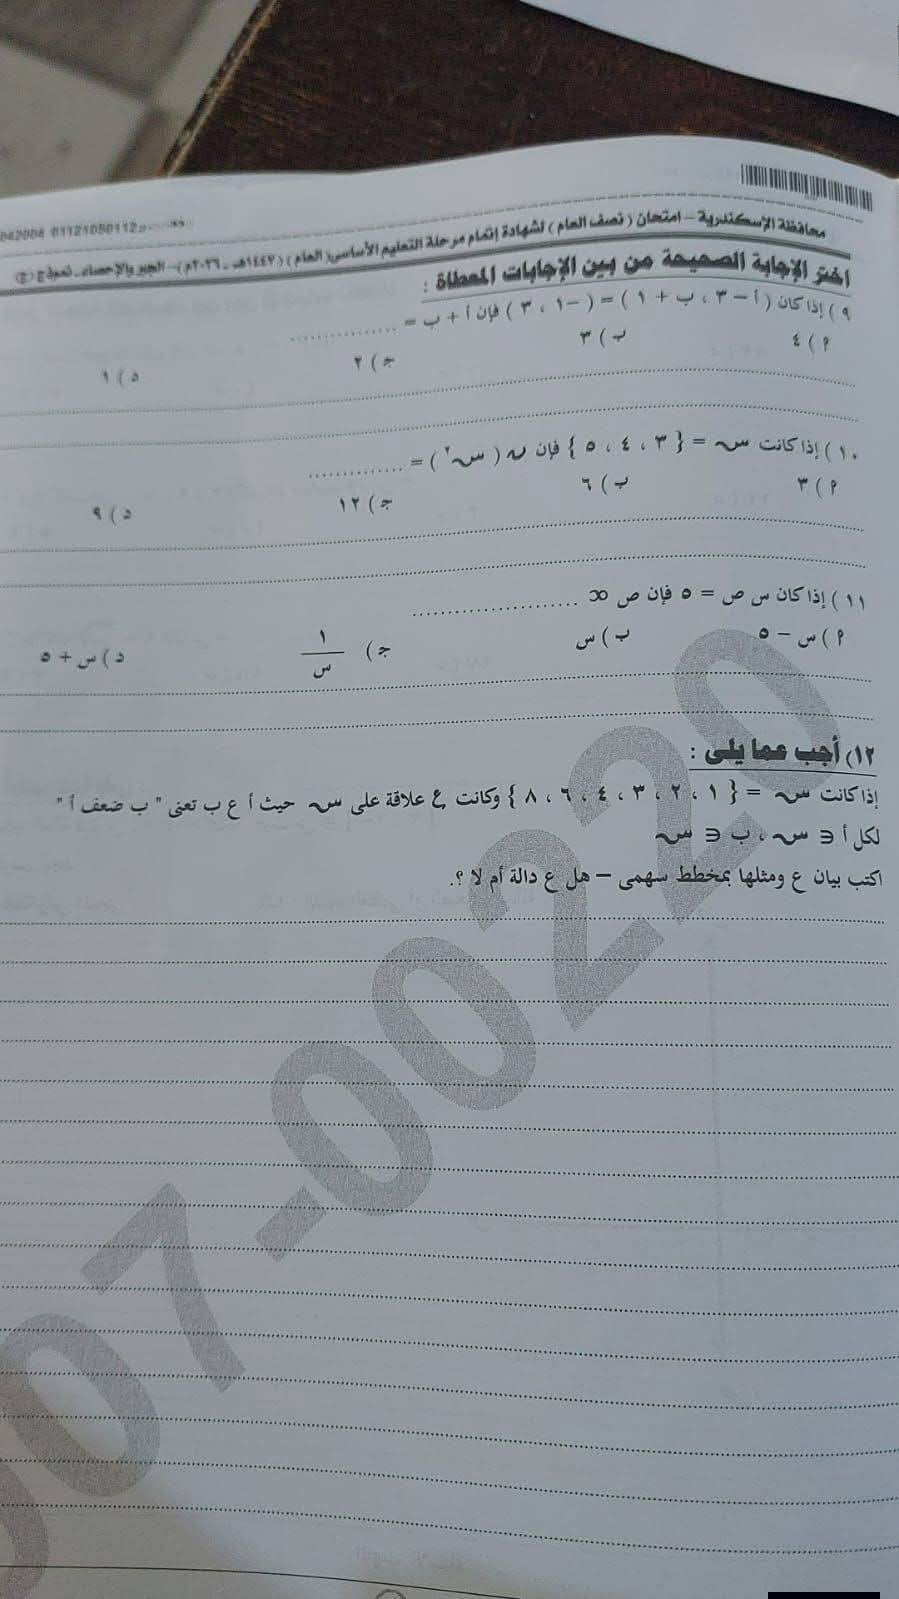 محافظة الإسكندرية – امتحان ( نصف العام ) لشهادة إتمام مرحلة التعليم الأساسى ( العام ) ( ١٤٤٧هـ - ٢٠٢٦م ) – الجبر والإحصاء - نموذج ( ج )
01121050112
اختر الإجابة الصحيحة من بين الإجابات المعطاة :
٩ ) إذا كان ( أ – ٣ ، ب + ١ ) = ( –١ ، ٣ ) فإن أ + ب = ...............
أ ) ٤ ب ) ٣ جـ ) ٢ د ) ١
١٠ ) إذا كانت س = { ٣ ، ٤ ، ٥ } فإن ن ( س٢ ) = ..............
أ ) ٣ ب ) ٦ جـ ) ١٢ د ) ٩
١١ ) إذا كان س ص = ٥ فإن ص ∝ ........................
أ ) س – ٥ ب ) س جـ ) ١/س د ) س + ٥
١٢) أجب عما يلى :
إذا كانت س = { ١ ، ٢ ، ٣ ، ٤ ، ٦ ، ٨ } وكانت ع علاقة على س حيث أ ع ب تعنى " ب ضعف أ "
لكل أ ∈ س ، ب ∈ س
اكتب بيان ع ومثلها بمخطط سهمى – هل ع دالة أم لا ؟.
007-00220